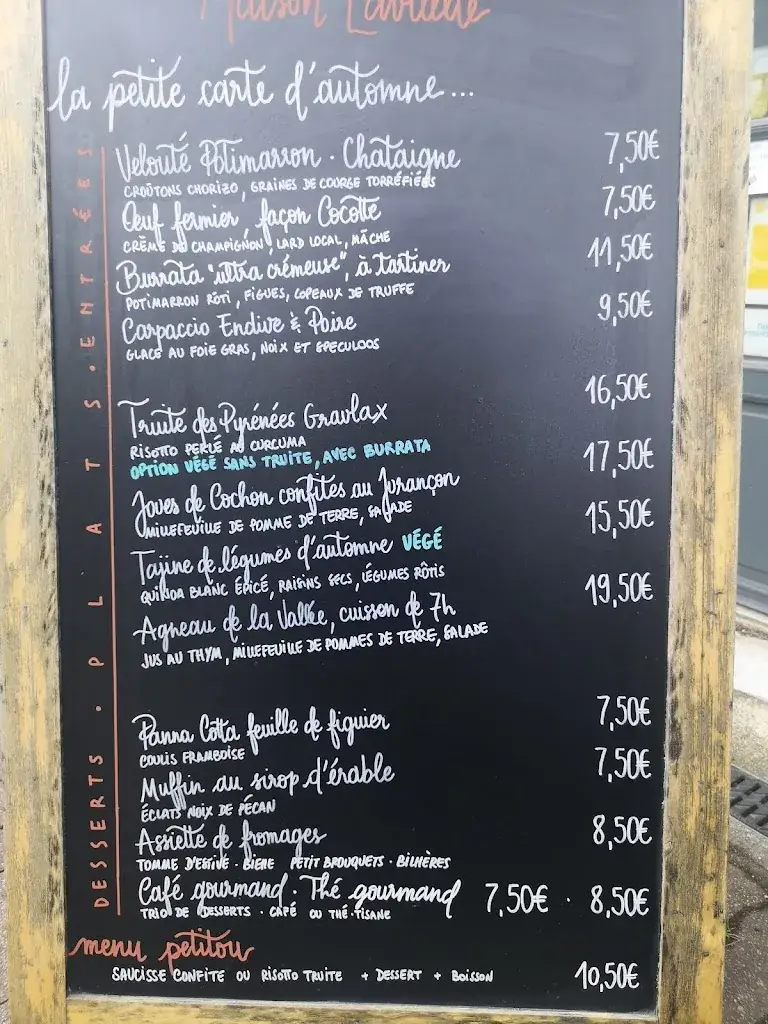 Maison Lavidale
la petite carte d'automne...
ENTRÉES
Velouté Potimarron · Chataigne 7,50€
CROÛTONS CHORIZO, GRAINES DE COURGE TORRÉFIÉES
Œuf fermier façon Cocotte 7,50€
CRÈME DE CHAMPIGNON, LARD LOCAL, MÂCHE
Burrata "ultra crémeuse", à tartiner 11,50€
POTIMARRON RÔTI, FIGUES, COPEAUX DE TRUFFE
Carpaccio Endive & Poire 9,50€
GLACE AU FOIE GRAS, NOIX ET SPECULOOS
PLATS
Truite des Pyrénées Gravlax 16,50€
RISOTTO PERLÉ AU CURCUMA
OPTION VÉGÉ SANS TRUITE, AVEC BURRATA
Joues de Cochon confites au Jurançon 17,50€
MILLEFEUILLE DE POMME DE TERRE, SALADE
Tajine de légumes d'automne VÉGÉ 15,50€
QUINOA BLANC ÉPICÉ, RAISINS SECS, LÉGUMES RÔTIS
Agneau de la Vallée, cuisson de 7h 19,50€
JUS AU THYM, MILLEFEUILLE DE POMMES DE TERRE, SALADE
DESSERTS
Panna Cotta feuille de figuier 7,50€
COULIS FRAMBOISE
Muffin au sirop d'érable 7,50€
ÉCLATS NOIX DE PÉCAN
Assiette de fromages 8,50€
TOMME D'ESTIVE · BIENE PETIT BROUQUETS · BILHÈRES
Café gourmand · Thé gourmand 7,50€ · 8,50€
TRIO DE DESSERTS · CAFÉ OU THÉ · TISANE
menu petitou
SAUCISSE CONFITE OU RISOTTO TRUITE + DESSERT + BOISSON 10,50€